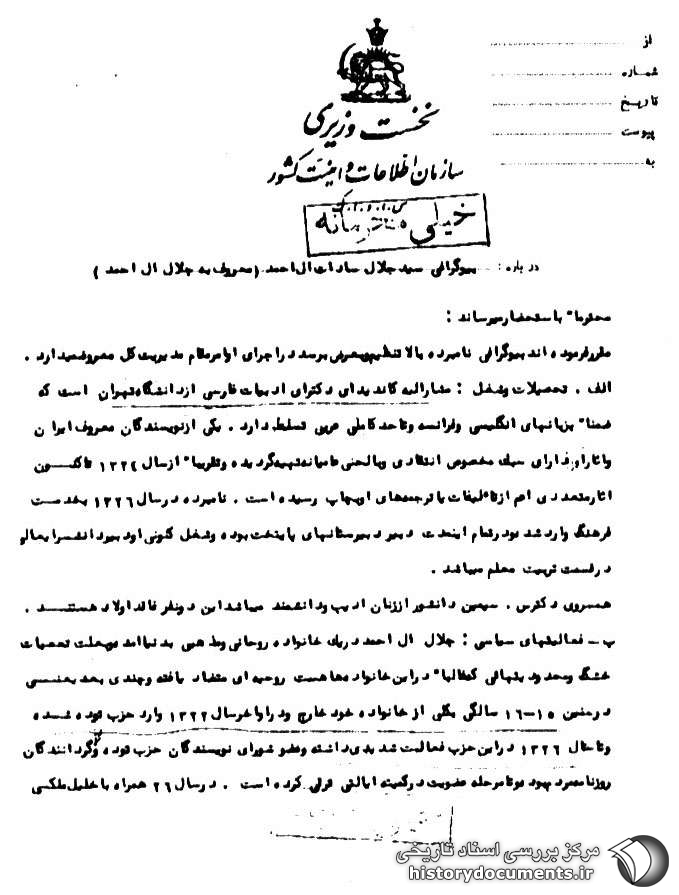 از
شماره
تاریخ
پیوست
به
نخست وزیری
سازمان اطلاعات و امنیت کشور
خیلی محرمانه
درباره : بیوگرافی سید جلال سادات ال احمد (معروف به جلال ال احمد )
محترما" باستحضار میرساند :
مقرر فرموده اند بیوگرافی نامبرده بالا تنظیم و بعرض برسد در اجرای اوامر مقام مدیریت کل معروض میدارد .
الف . تحصیلات و شغل : مشارالیه کاندیدای دکترای ادبیات فارسی از دانشگاه تهران است که
ضمنا" بزبانهای انگلیسی و فرانسه و تا حد کاملی عربی تسلط دارد . یکی از نویسندگان معروف ایران
و اثار او دارای سبک مخصوص انتقادی و بالحنی عامیانه تهیه گردیده و تقریبا" از سال ۱۳۲۴ تاکنون
اثار متعددی اعم از تالیفات یا ترجمه های او بچاپ رسیده است . نامبرده در سال ۱۳۲۶ بخدمت
فرهنگ وارد شد و در تمام اینمدت دبیر دبیرستانهای پایتخت بوده و شغل کنونی او دبیر دانشسرایعالی
در قسمت تربیت معلم میباشد .
همسر وی دکتر س . سیمین دانشور از زنان ادیب و دانشمند میباشد این دو نفر فاقد اولاد هستند .
ب ـ فعالیتهای سیاسی : جلال ال احمد در یک خانواده روحانی و مذهبی بدنیا امده و بعلت تعصبات
خشک و محدودیتهائی که غالبا" در این خانواده ها هست روحیه ای متضاد یافته و چندی بعد یعنی
در سنین ۱۵-۱۶ سالگی بکلی از خانواده خود خارج و در اواخر سال ۱۳۲۲ وارد حزب توده شده
و تا سال ۱۳۲۶ در این حزب فعالیت شدیدی داشته و عضو شورای نویسندگان حزب توده و گردانندگان
روزنامه مردم بوده و تا مرحله عضویت در کمیته ایالتی ترقی کرده است . در سال ۲۶ همراه با خلیل ملکی
مرکز بررسی اسناد تاریخی
historydocuments.ir